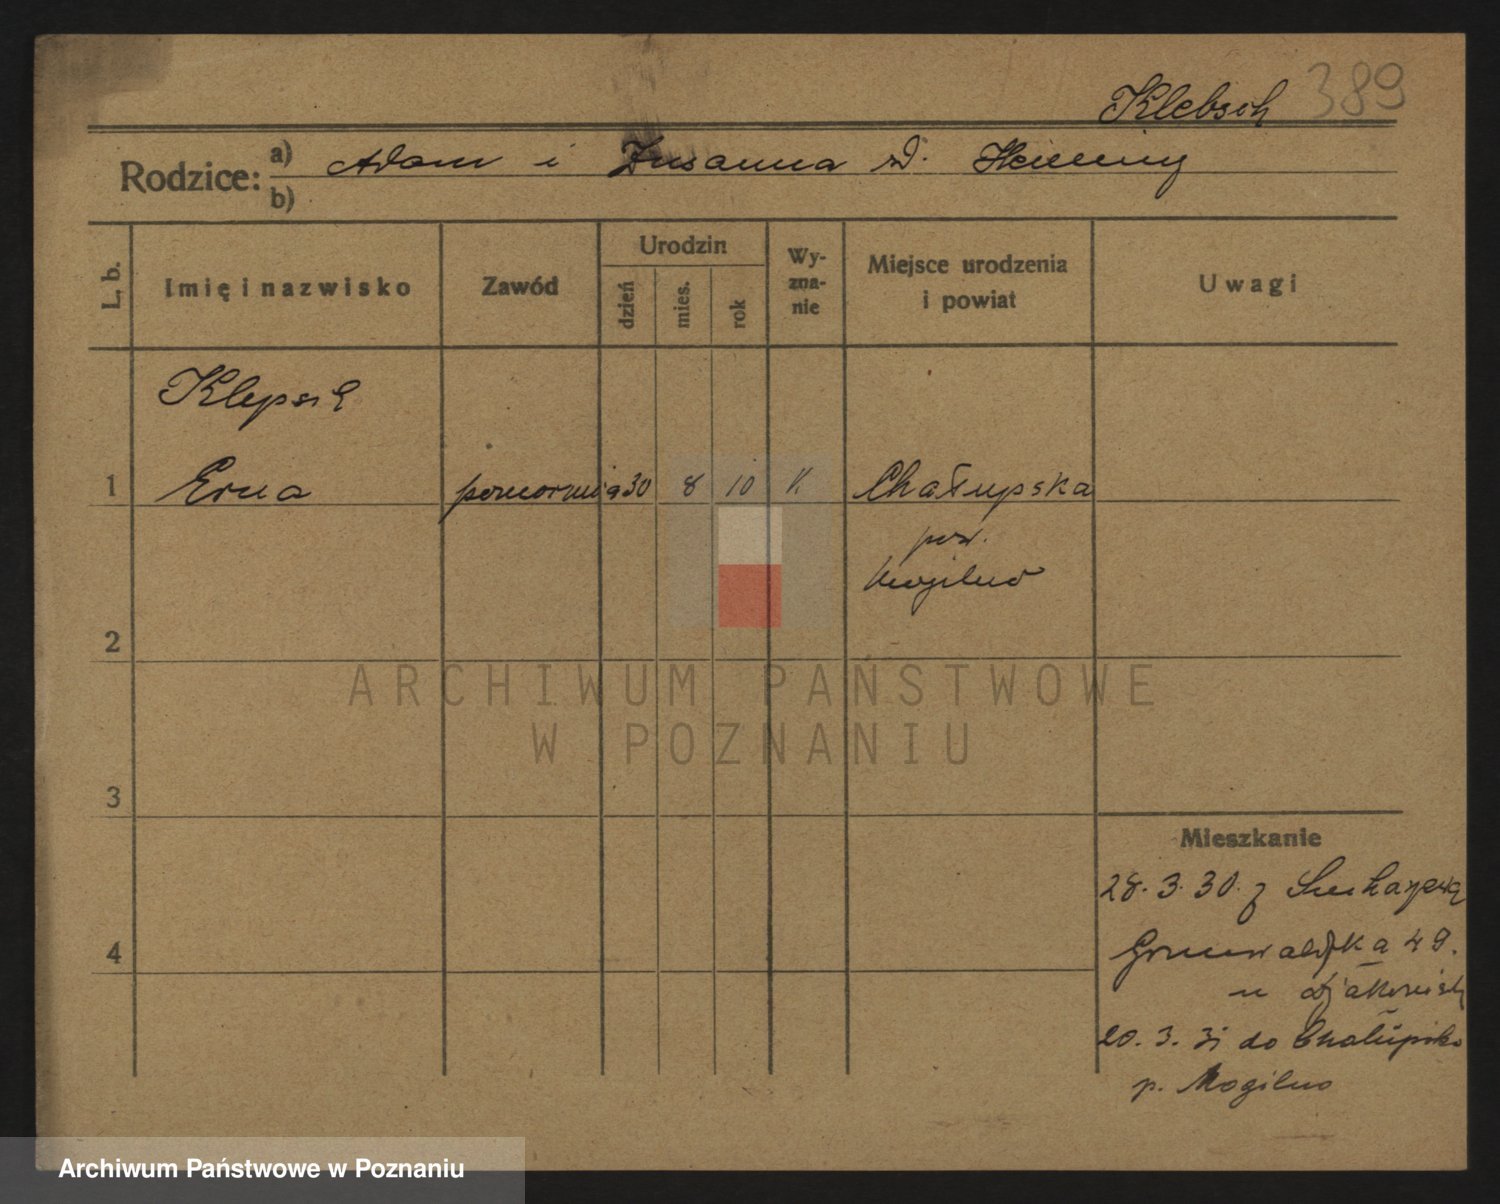 Klebsch 389
Rodzice: a) Adam i Zusanna d. Henning
b)
L. b. Imię i nazwisko Zawód Urodzin dzień mies. rok Wy-zna-nie Miejsce urodzenia i powiat Uwagi
Klepsch
1 Erna pomornica 30 8 10 K. Chałupska
pow.
Mogilno
2
ARCHIWUM PAŃSTWOWE
W POZNANIU
3
Mieszkanie
28. 3. 30. z
4 49.
u
20. 3. 31 do Chałupsko
p. Mogilno
Archiwum Państwowe w Poznaniu